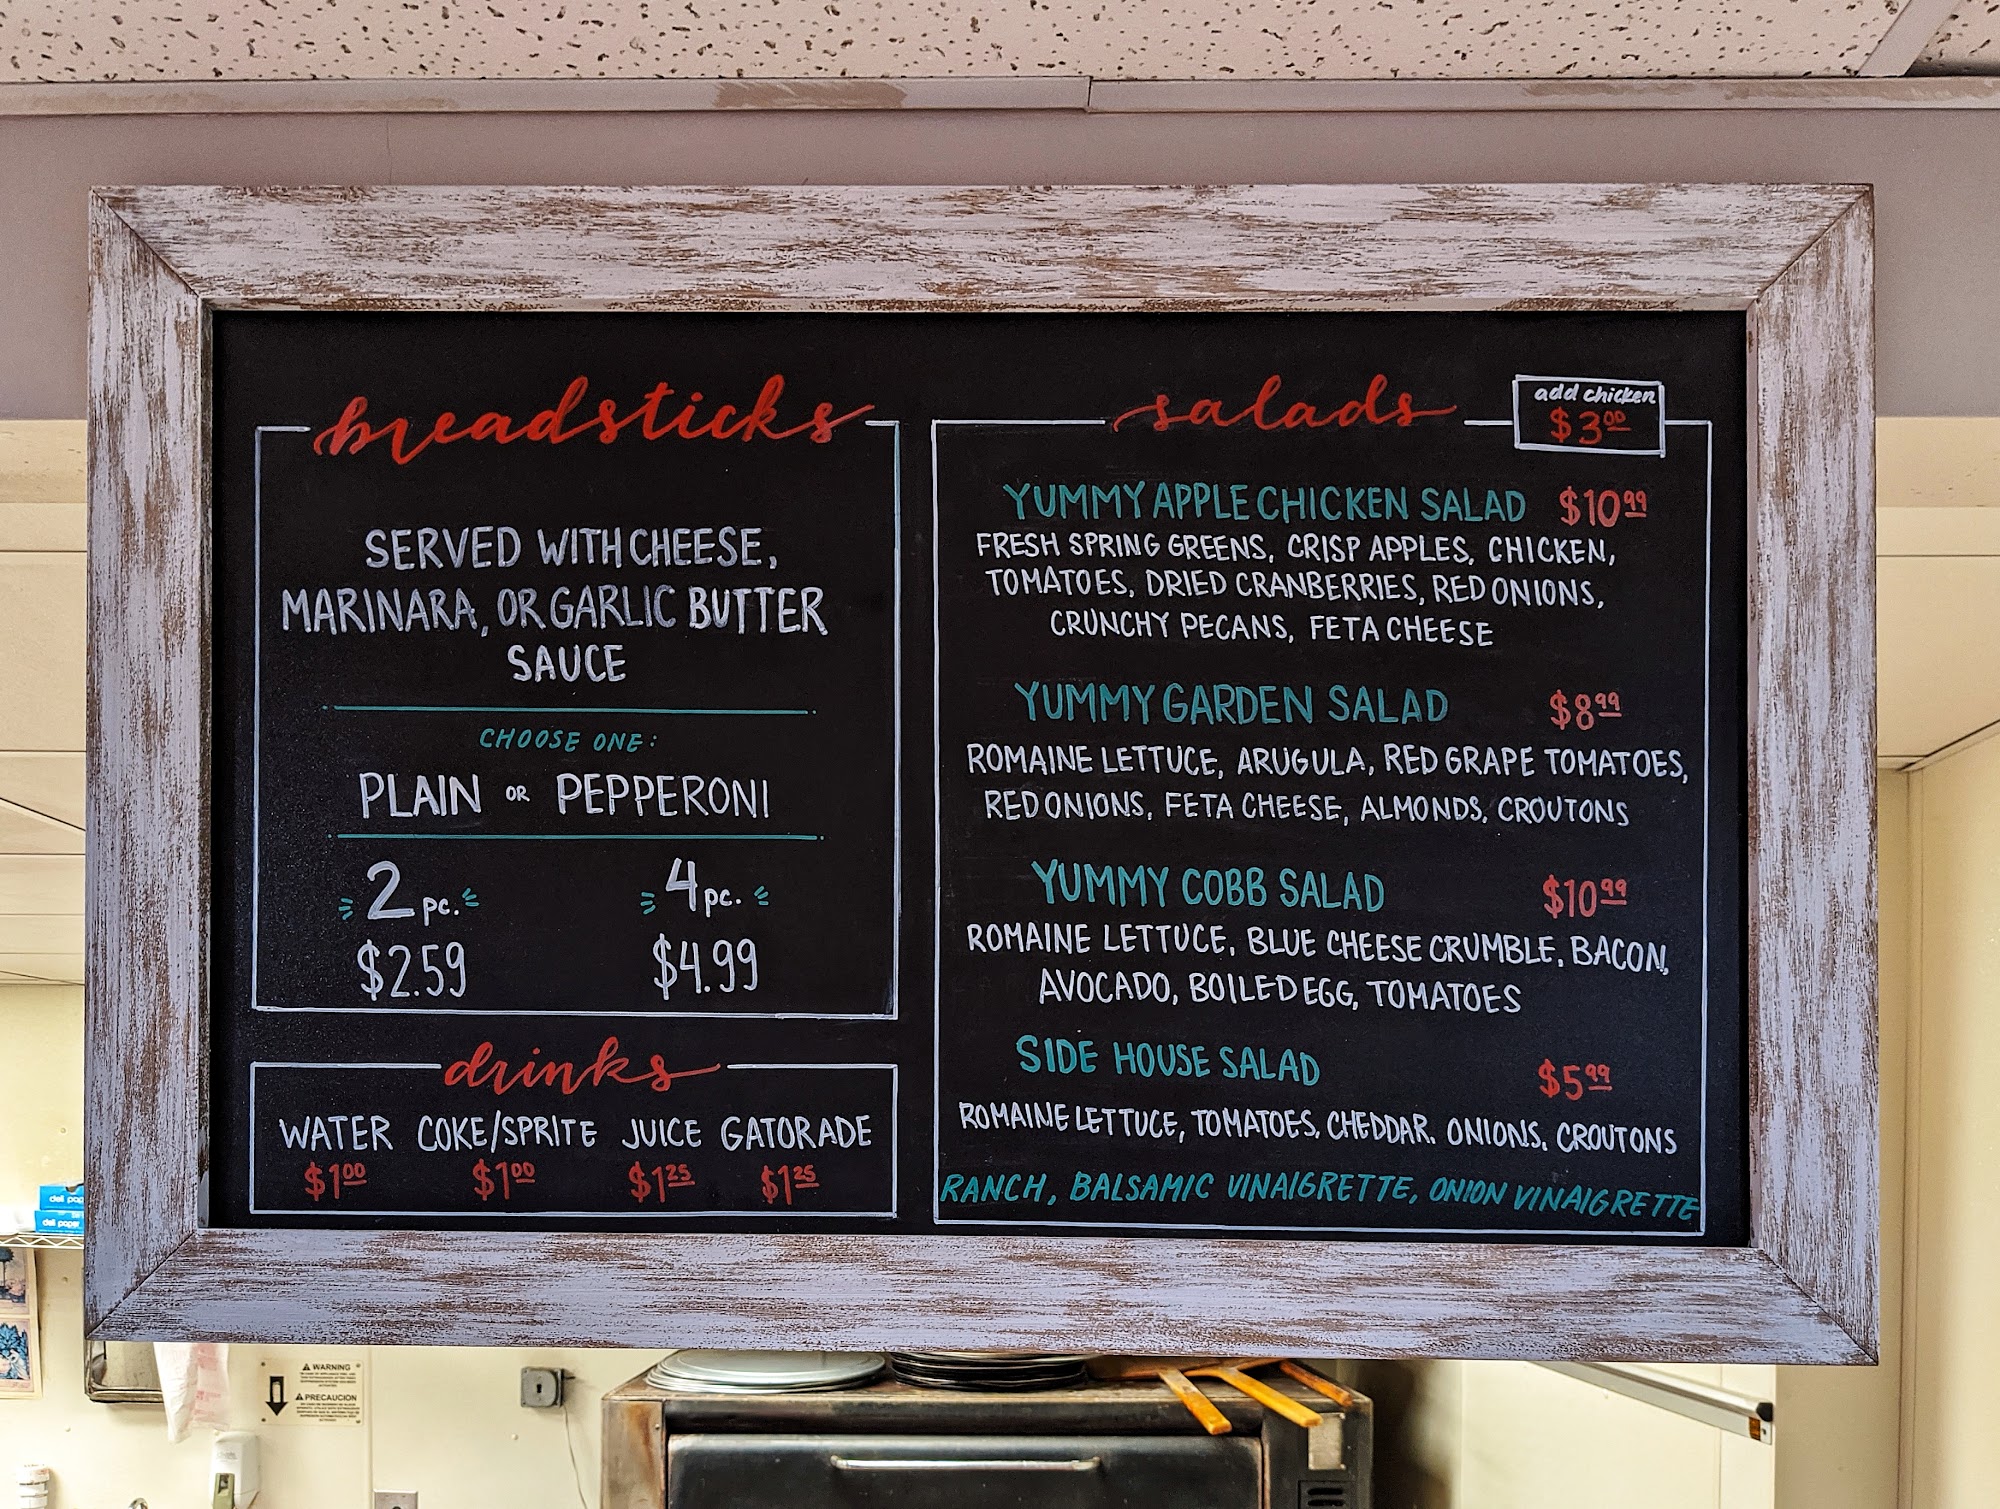 breadsticks
SERVED WITH CHEESE,
MARINARA, OR GARLIC BUTTER
SAUCE
CHOOSE ONE:
PLAIN OR PEPPERONI
2 pc. 4 pc.
$2.59 $4.99
drinks
WATER COKE/SPRITE JUICE GATORADE
$1.00 $1.00 $1.25 $1.25
salads
add chicken
$3.00
YUMMY APPLE CHICKEN SALAD $10.99
FRESH SPRING GREENS, CRISP APPLES, CHICKEN,
TOMATOES, DRIED CRANBERRIES, RED ONIONS,
CRUNCHY PECANS, FETA CHEESE
YUMMY GARDEN SALAD $8.99
ROMAINE LETTUCE, ARUGULA, RED GRAPE TOMATOES,
RED ONIONS, FETA CHEESE, ALMONDS, CROUTONS
YUMMY COBB SALAD $10.99
ROMAINE LETTUCE, BLUE CHEESE CRUMBLE, BACON,
AVOCADO, BOILED EGG, TOMATOES
SIDE HOUSE SALAD $5.99
ROMAINE LETTUCE, TOMATOES, CHEDDAR, ONIONS, CROUTONS
RANCH, BALSAMIC VINAIGRETTE, ONION VINAIGRETTE
deli pap
deli paper
WARNING
PRECAUCION